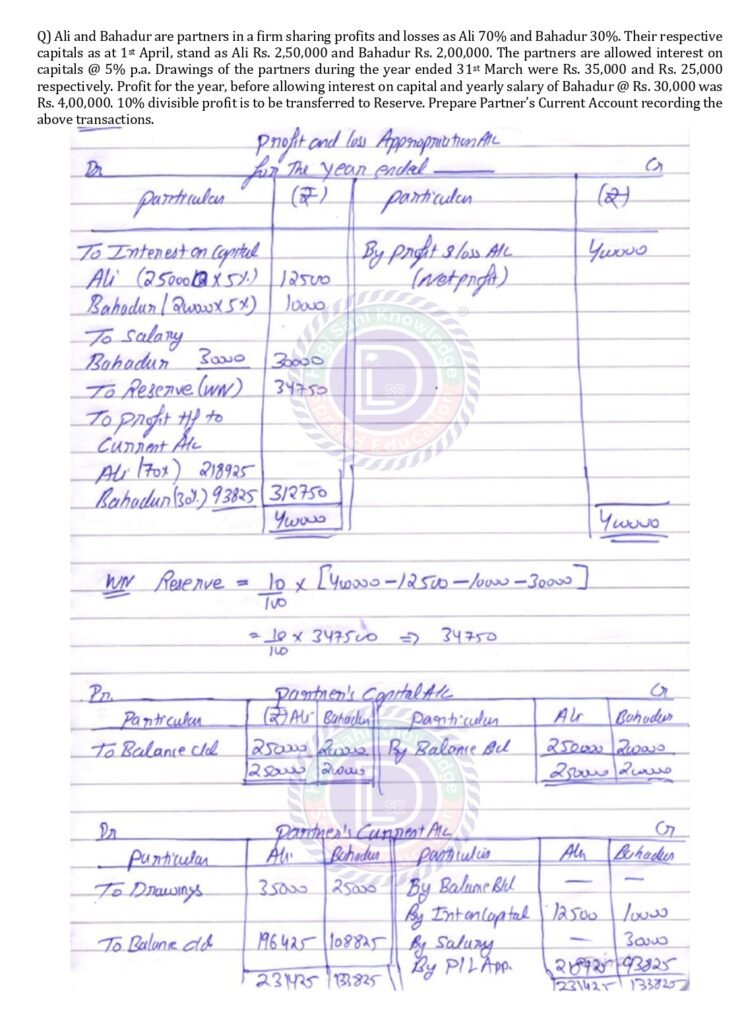 Q) Ali and Bahadur are partners in a firm sharing profits and losses as Ali 70% and Bahadur 30%. Their respective
capitals as at 1st April, stand as Ali Rs. 2,50,000 and Bahadur Rs. 2,00,000. The partners are allowed interest on
capitals @ 5% p.a. Drawings of the partners during the year ended 31st March were Rs. 35,000 and Rs. 25,000
respectively. Profit for the year, before allowing interest on capital and yearly salary of Bahadur @ Rs. 30,000 was
Rs. 4,00,000. 10% divisible profit is to be transferred to Reserve. Prepare Partner's Current Account recording the
above transactions.
Profit and loss Appropriation A/c
Dr for the year ended Cr
particulars (₹) particulars (₹)
To Interest on Capital By profit & loss A/c 400000
Ali (250000 x 5%) 12500 (net profit)
Bahadur (200000 x 5%) 10000
To Salary
Bahadur 30000 30000
To Reserve (WN) 34750
To profit t/f to
Current A/c
Ali (70%) 218925
Bahadur (30%) 93825 312750
400000 400000
WN Reserve = 10/100 x [400000 - 12500 - 10000 - 30000]
= 10/100 x 347500 => 34750
Dr. Partner's Capital A/c Cr
Particulars (₹) Ali Bahadur particulars Ali Bahadur
To Balance c/d 250000 200000 By Balance B/d 250000 200000
250000 200000 250000 200000
Dr Partner's Current A/c Cr
particulars Ali Bahadur particulars Ali Bahadur
To Drawings 35000 25000 By Balance B/d — —
By Int on Capital 12500 10000
To Balance c/d 196425 108825 By Salary — 30000
By P/L App. 218925 93825
231425 133825 231425 133825
Hagi Sahi Knowledge
Spread Education
LD
SE
®